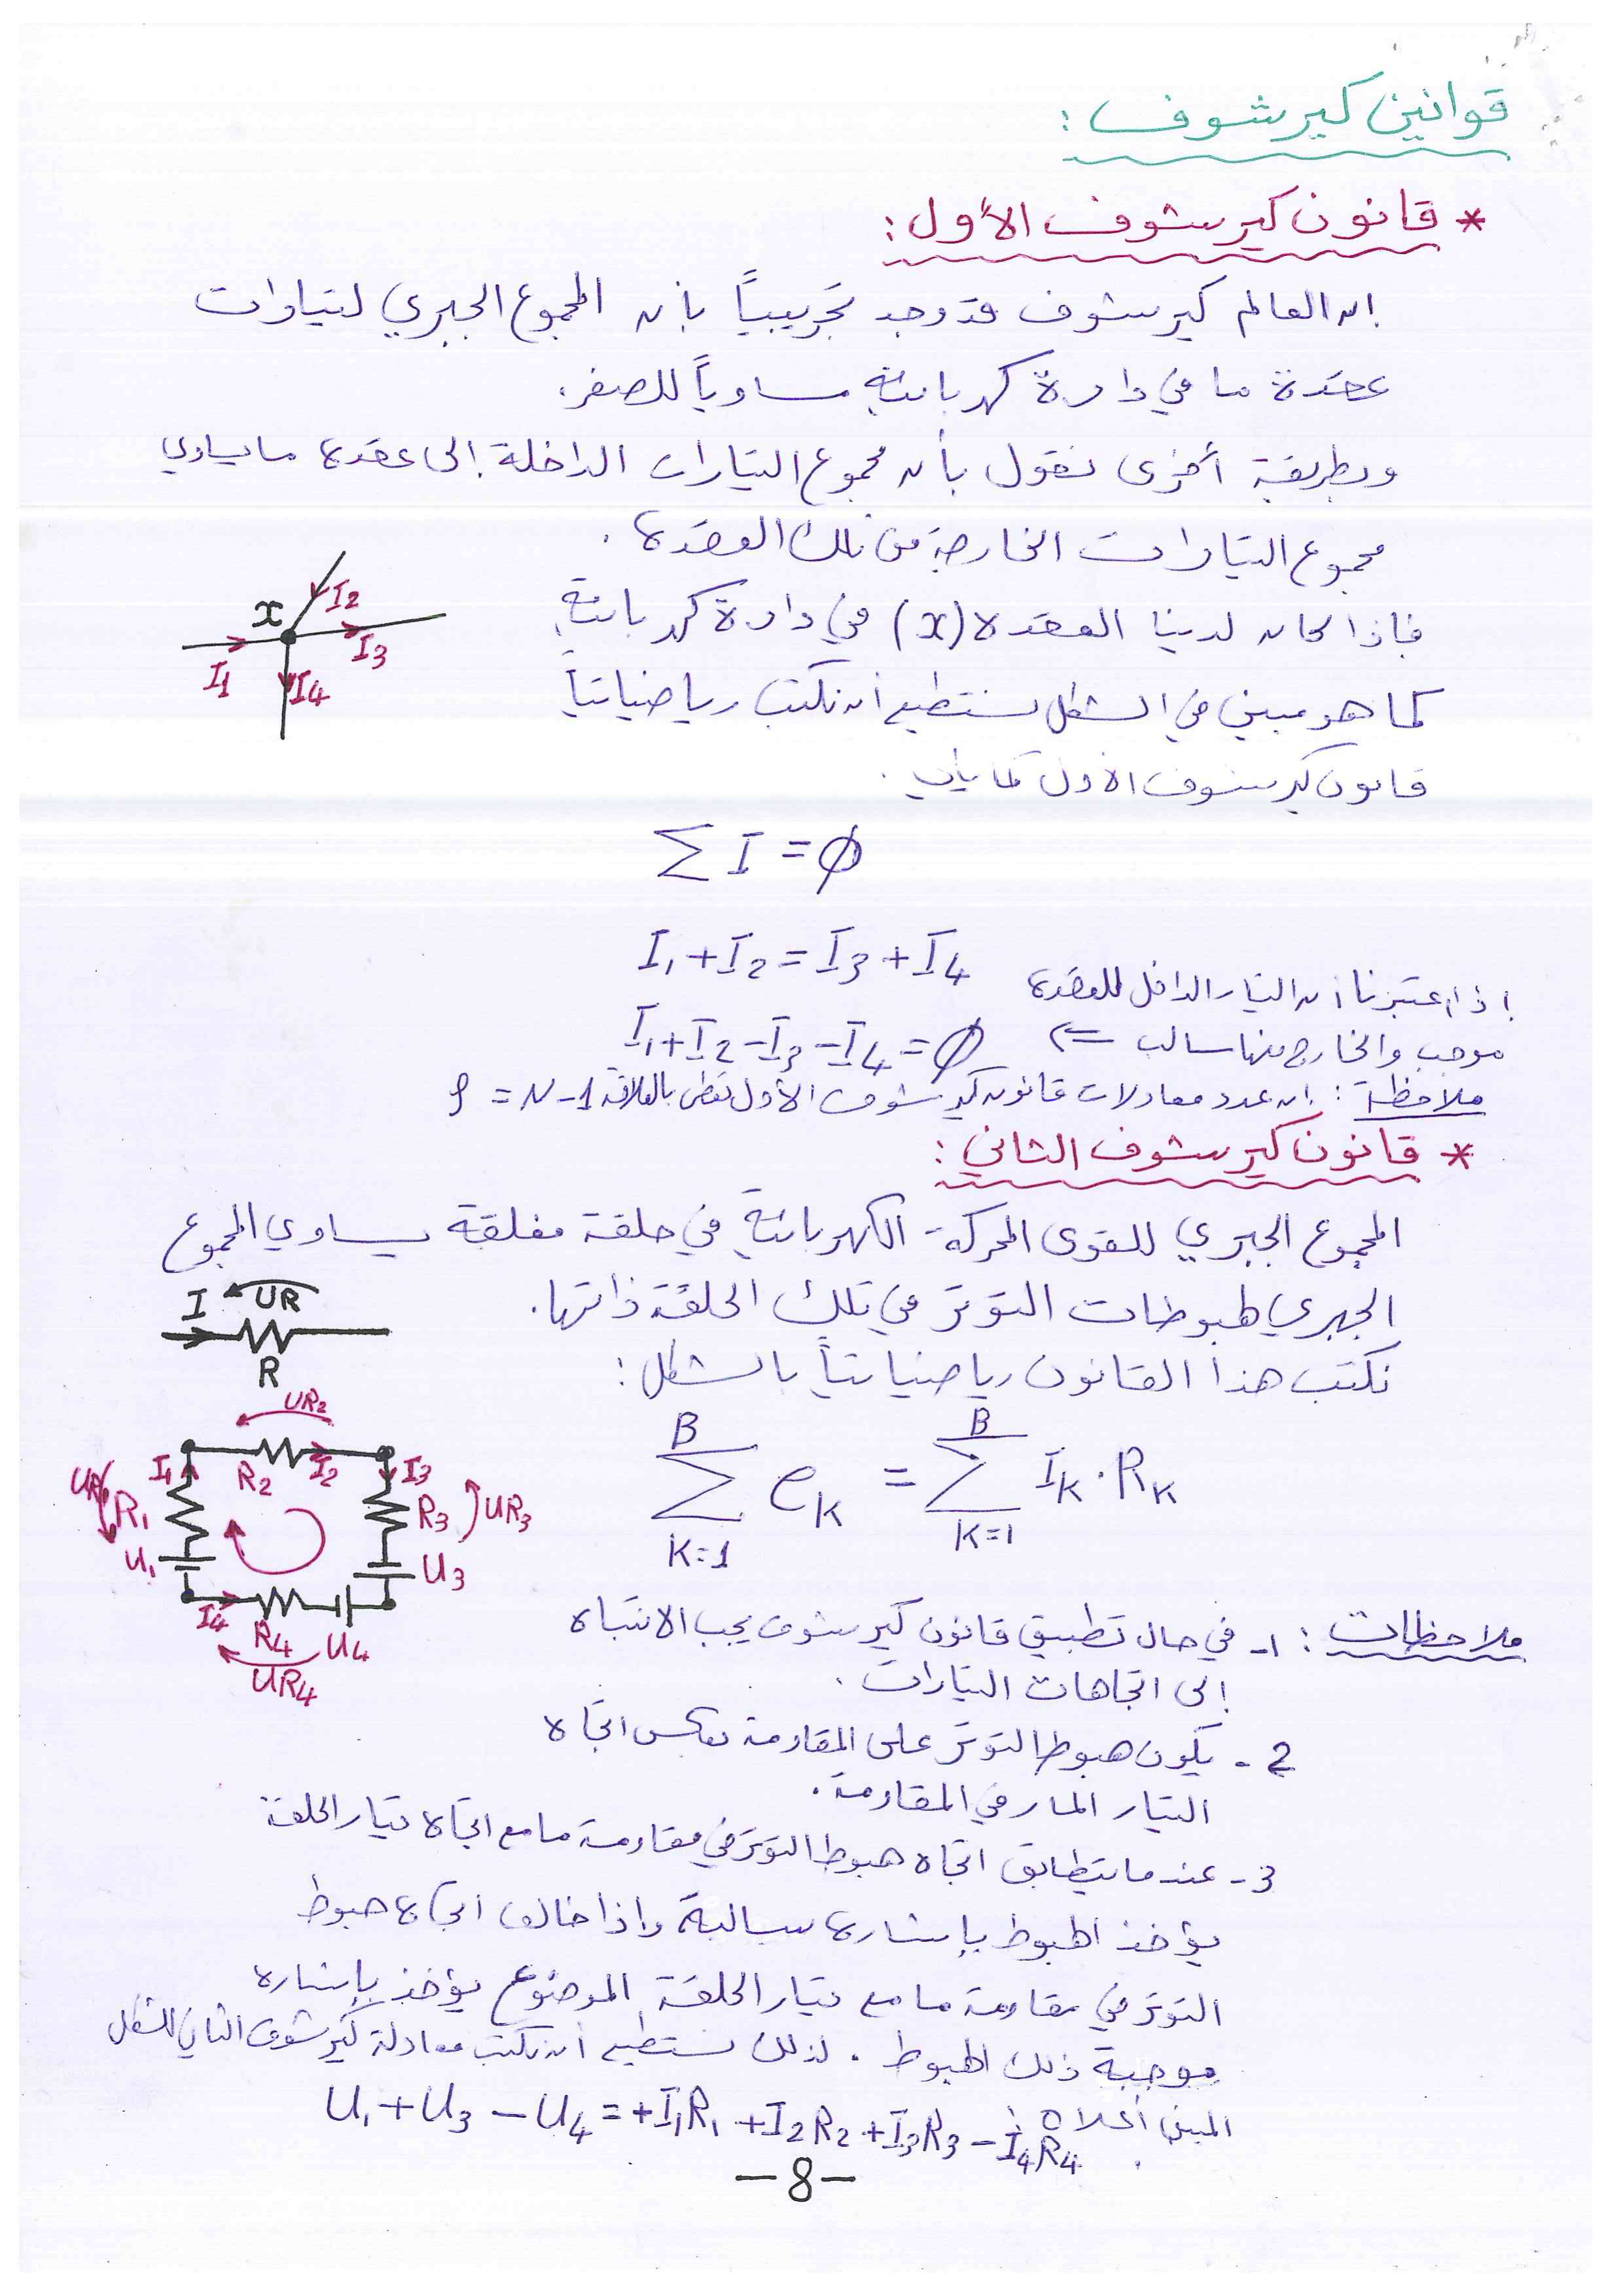 قوانين كيرشوف :
* قانون كيرشوف الأول :
إن العالم كيرشوف قد وجد تجريبياً بأن المجموع الجبري لتيارات
عقدة ما في دارة كهربائية مساوياً للصفر.
وبطريقة أخرى نقول بأن مجموع التيارات الداخلة إلى عقدة ما يساوي
مجموع التيارات الخارجة من تلك العقدة .
فإذا كان لدينا العقدة (x) في دارة كهربائية
كما هو مبين في الشكل نستطيع أن نكتب رياضياتياً
قانون كيرشوف الأول كما يلي .
x
I2
I3
I1
I4
∑ I = ∅
I1 + I2 = I3 + I4
إذا اعتبرنا أن التيار الداخل للعقدة
موجب والخارج منها سالب ⇐ I1 + I2 - I3 - I4 = ∅
ملاحظة : إن عدد معادلات قانون كيرشوف الأول تعطى بالعلاقة ρ = N - 1
* قانون كيرشوف الثاني :
المجموع الجبري للقوى المحركة الكهربائية في حلقة مغلقة يساوي المجموع
الجبري لهبوطات التوتر في تلك الحلقة ذاتها.
نكتب هذا القانون رياضياتياً بالشكل :
I
UR
R
∑ (K=1 → B) eK = ∑ (K=1 → B) IK . RK
UR2
I1
R2
I2
I3
UR1
R1
R3
UR3
U1
U3
I4
R4
U4
UR4
ملاحظات : 1- في حال تطبيق قانون كيرشوف يجب الانتباه
إلى اتجاهات التيارات .
2- يكون هبوط التوتر على المقاومة بعكس اتجاه
التيار المار في المقاومة .
3- عندما يتطابق اتجاه هبوط التوتر في مقاومة ما مع اتجاه تيار الحلقة
يؤخذ الهبوط بإشارة سالبة وإذا خالف اتجاه هبوط
التوتر في مقاومة ما مع تيار الحلقة الموضوع يؤخذ بإشارة
موجبة ذلك الهبوط . لذلك نستطيع أن نكتب معادلة كيرشوف الثاني للشكل
المبين أعلاه :
U1 + U3 - U4 = +I1R1 + I2R2 + I3R3 - I4R4
-8-